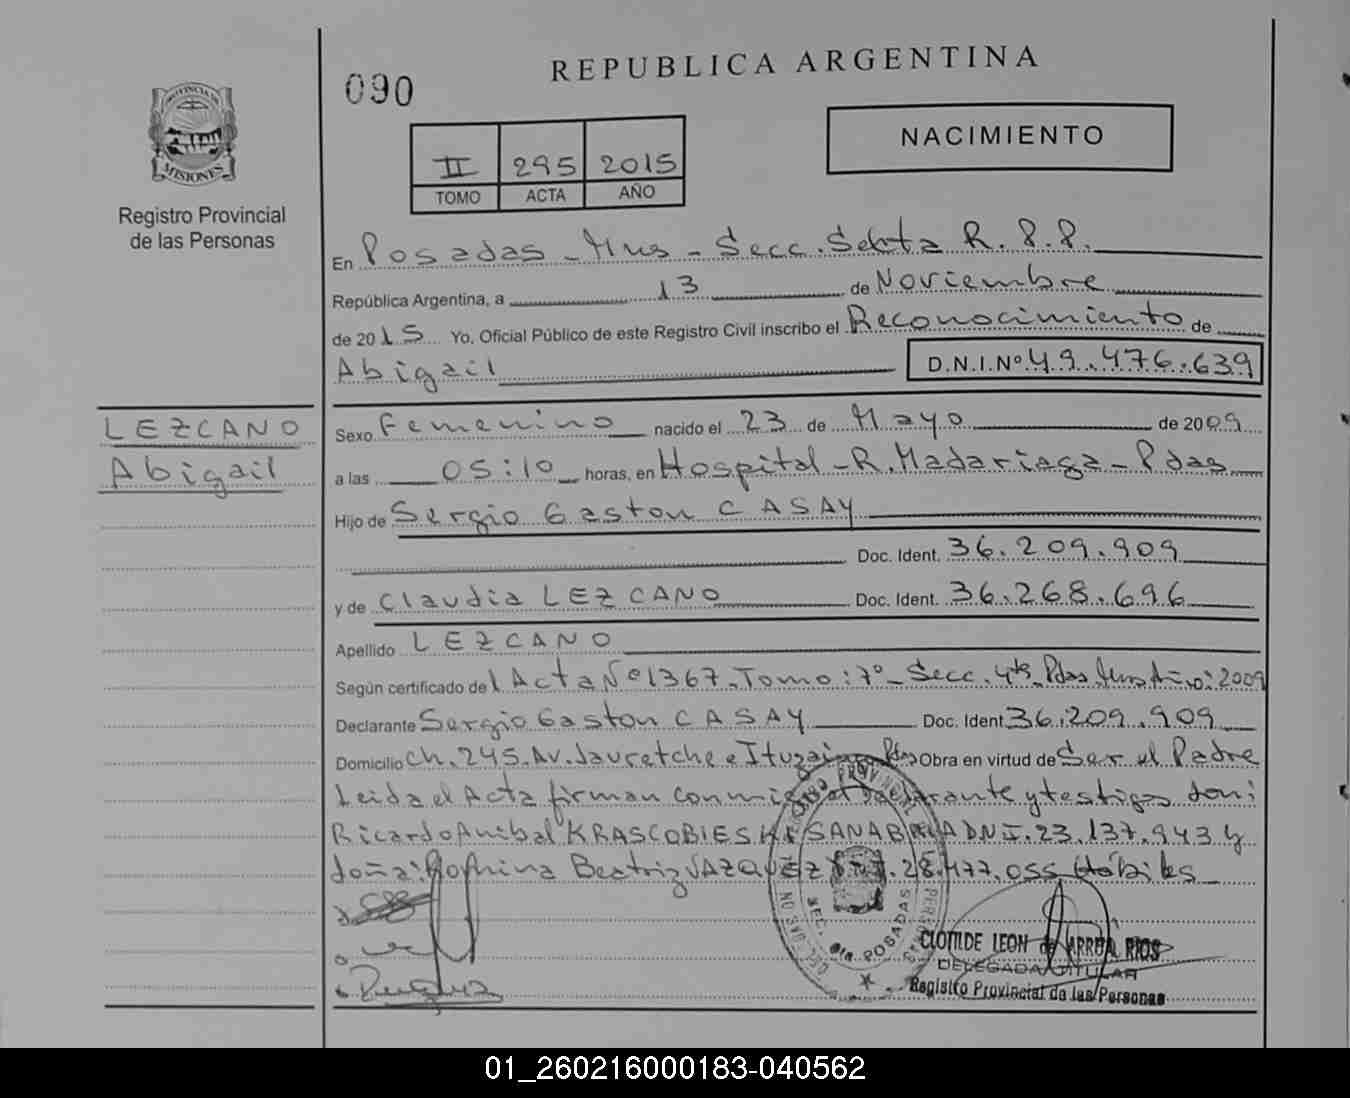 090
REPUBLICA ARGENTINA
NACIMIENTO
II 295 2015
TOMO ACTA AÑO
PROVINCIA DE
MISIONES
Registro Provincial
de las Personas
En Posadas - Mnes - Secc. Sexta R. P. P.
República Argentina, a 13 de Noviembre
de 2015 Yo, Oficial Público de este Registro Civil inscribo el Reconocimiento de
Abigail D.N.I.Nº 49.476.639
LEZCANO
Abigail
Sexo Femenino nacido el 23 de Mayo de 2009
a las 05:10 horas, en Hospital - R. Madariaga - Pdas
Hijo de Sergio Gaston CASAY
Doc. Ident. 36.209.909
y de Claudia LEZCANO Doc. Ident. 36.268.696
Apellido LEZCANO
Según certificado del Acta Nº 1367. Tomo: 7º - Secc. 4ta Pdas Mnes Año: 2009
Declarante Sergio Gaston CASAY Doc. Ident 36.209.909
Domicilio Ch. 245. Av. Jauretche e Pdas Obra en virtud de Ser el Padre
Leida el Acta firman conmigo el declarante y testigos don:
Ricardo Anibal KRASCOBIESKI SANABRIA DNI. 23.137.943 y
doña: Romina Beatriz VAZQUEZ 28.477.055 Hábiles
SEC. 6ta POSADAS
CLOTILDE LEON de ARRUA RIOS
DELEGADA TITULAR
Registro Provincial de las Personas
01_260216000183-040562